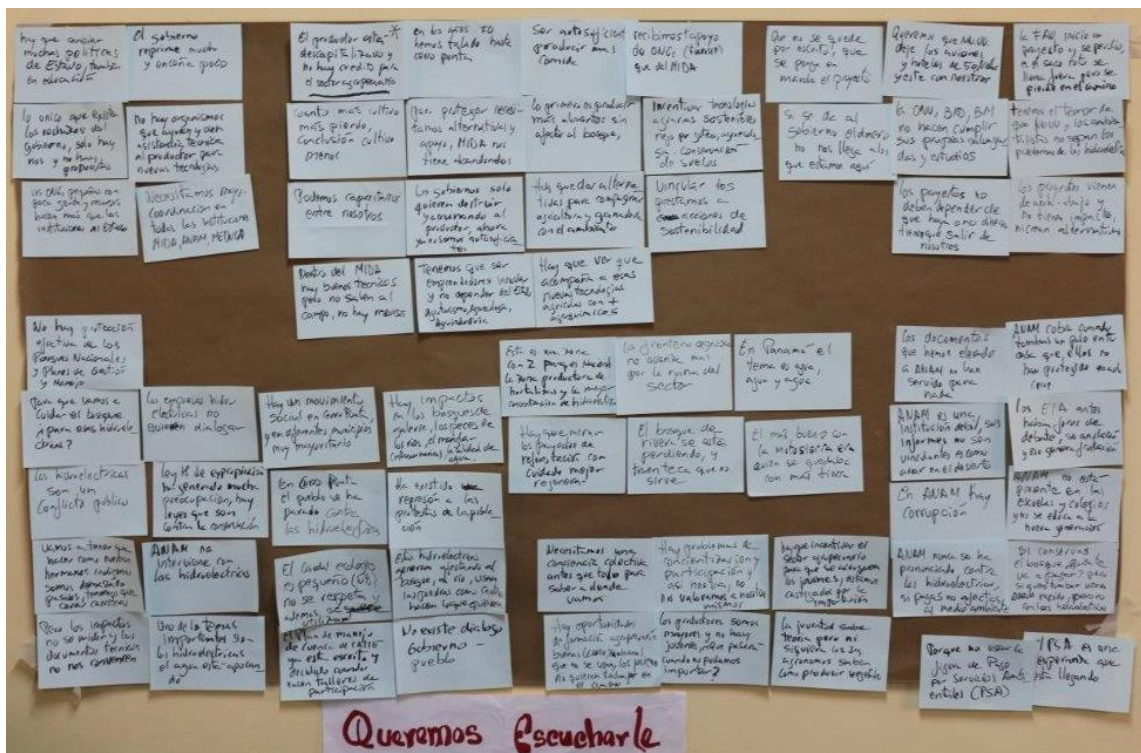 hay que cambiar
muchas políticas
de Estado, también
en educación
El gobierno
reprime mucho
y enseña poco
El productor está
descapitalizado y
no hay credito para
el sector agropecuario
en los años 70
hemos talado hasta
cerro punta
Ser autosuficient
producir mas
comida
recibimos apoyo
de ONG,
que del MIDA
Que no se quede
por escrito, que
se ponga en
marcha el proyecto
Queremos que NNUU
deje los aviones
y hoteles de 5 estrellas
y este con nosotros
la FAO, inicio un
proyecto y se perdio,
en el saco roto se
llena pero se
pierde en el camino
lo unico que existe
los rechazos del
gobierno, solo hay
nos y no hay
propuestas
No hay organismos
que ayuden y den
asistencia tecnica
al productor para
nuevas tecnologias
Cuanto más cultivo
más pierdo,
conclusión cultivo
menos
Para proteger neces-
itamos alternativas y
apoyo, MIDA nos
tiene abandonados
lo primero es producir
más alimentos sin
afectar al bosque,
Incentivar tecnologias
agrarias sostenibles
riego por goteo,
conservación
de suelos
Si se da al
Gobierno el dinero
no nos llega a los
que estamos aquí
la ONU, BID, BM
no hacen cumplir
sus propias salvaguar-
das y estudios
tenemos el temor de
que NNUU y los ambien-
talistas no sepan los
problemas de las hidroelectricas
las ONGs pequeñas con
poca gente y recursos
hacen mas que las
instituciones del Estado
Necesitamos mayor
coordinación en
todas las instituciones
MIDA, ANAM, MEDUCA
Podemos capacitarnos
entre nosotros
Los gobiernos solo
quieren destruir
y arruinando al
productor, ahora
ya no somos autosuficien
tes
Hay que dar alterna
tivas para conjugar
agricultura y ganaderia
con el ambiente
Vincular los
prestamos a
acciones de
sostenibilidad
los proyectos no
deben depender de
que haya o no dinero
tiene que salir de
nosotros
los proyectos vienen
de arriba-abajo y
no tienen impacto,
ni crean alternativas
Dentro del MIDA
hay buenos tecnicos
pero no salen al
campo, no hay recursos
Tenemos que ser
emprendedores innovar
y no depender del Estado
Agroturismo, Agroecologia,
Agroindustria
Hay que ver que
acompaña a esas
nuevas tecnologias
agricolas con +
agroquimicos
No hay protección
efectiva de los
Parques Nacionales
y Planes de Gestión
y Manejo
Esta es una zona
con 2 parques Nacionales
la zona productora de
hortalizas y la mayor
concentracion de hidroelectricas
la frontera agricola
no avanza mas
por la ruina del
sector
En Panamá el
tema es agua,
agua y agua
los documentos
que hemos elevado
a ANAM no han
servido para
nada
ANAM cobra cuando
tumbas un palo en tu
casa que, ellos no
han protegido
Para que vamos a
cuidar el bosque
¿para esas hidroelec-
tricas?
las empresas hidro
electricas no
quieren dialogar
Hay un movimiento
social en Cerro Punta,
y en diferentes municipios
muy mayoritario
Hay impactos
en los bosques de
galeria, los peces de
los rios, el manglar
la calidad de
agua.
Hay que mirar
los proyectos de
reforestación con
cuidado mejor
regenerar
El bosque de
rivera se esta
perdiendo, y
tran teca que no
sirve
El más bueno co
la motosierra era
quien se quedaba
con más tierra
ANAM es una
institución debil, sus
informes no son
vinculantes es como
arar en el desierto
los EIA antes
habian foros de
debate, se anularon
y eso genera frustración
las hidroelectricas
son un
conflicto público
ley 18 de expropiación
ha generado mucha
preocupación, hay
leyes que son
contra la constitución
En Cerro Punta
el pueblo se ha
parado contra
las hidroelectricas
Ha existido
represión a las
protestas de la pobla-
ción
En ANAM hay
corrupción
ANAM no está
presente en las
escuelas y colegios
y no se educa a la
nueva generación
Vamos a tener que
hacer como nuestros
hermanos indigenas
somos demasiado
pasivos, tenemos que
cerrar carreteras
ANAM no
interviene con
las hidroelectricas
El caudal ecologico
es pequeño (10%)
no se respeta y
ademas,
utilizar
Esas hidroelectricas
generan afectando al
bosque, al rio, usan
hacen lo que quieren
Necesitamos una
conciencia colectiva
antes que todo para
saber a donde
vamos
Hay problemas de
concientización y
participación y
asi nos va, no
los valoramos a nosotros
mismos
hay que incentivar el
sector agropecuario
para que se acerquen
los jóvenes, estamos
castigados por la
importación
ANAM nunca se ha
pronunciado contra
las hidroelectricas,
si pagas no afectas
al medio ambiente
Si conservas
el bosque ¿quien te
va a pagar? pero
si quieren tumbar un
palo rapido, pero no
con las hidroelectricas
Pero los impactos
no se miden y los
documentos tecnicos
no nos convencen
Uno de los temas
importantes son
las hidroelectricas
el agua esta
El Plan de manejo
de cuenca del CATIE
ya esta escrito y
decidido cuando
hacen talleres de
participación
No existe dialogo
Gobierno -
pueblo
Hay oportunidades
de formación agropecuaria
buenas
que no se usan, los jovenes
no quieren trabajar en
el campo
los productores somos
mayores y no hay
jovenes, ¿que pasará
cuando no podamos
importar?
la juventud sabe
teoria pero ni
siquiera los Ing
agronomos saben
como producir vegetales
Porque no usar la
figura de Pago
por Servicios Ambi
entales (PSA)
¿PSA es una
esperanza que
está llegando
Queremos Escucharle